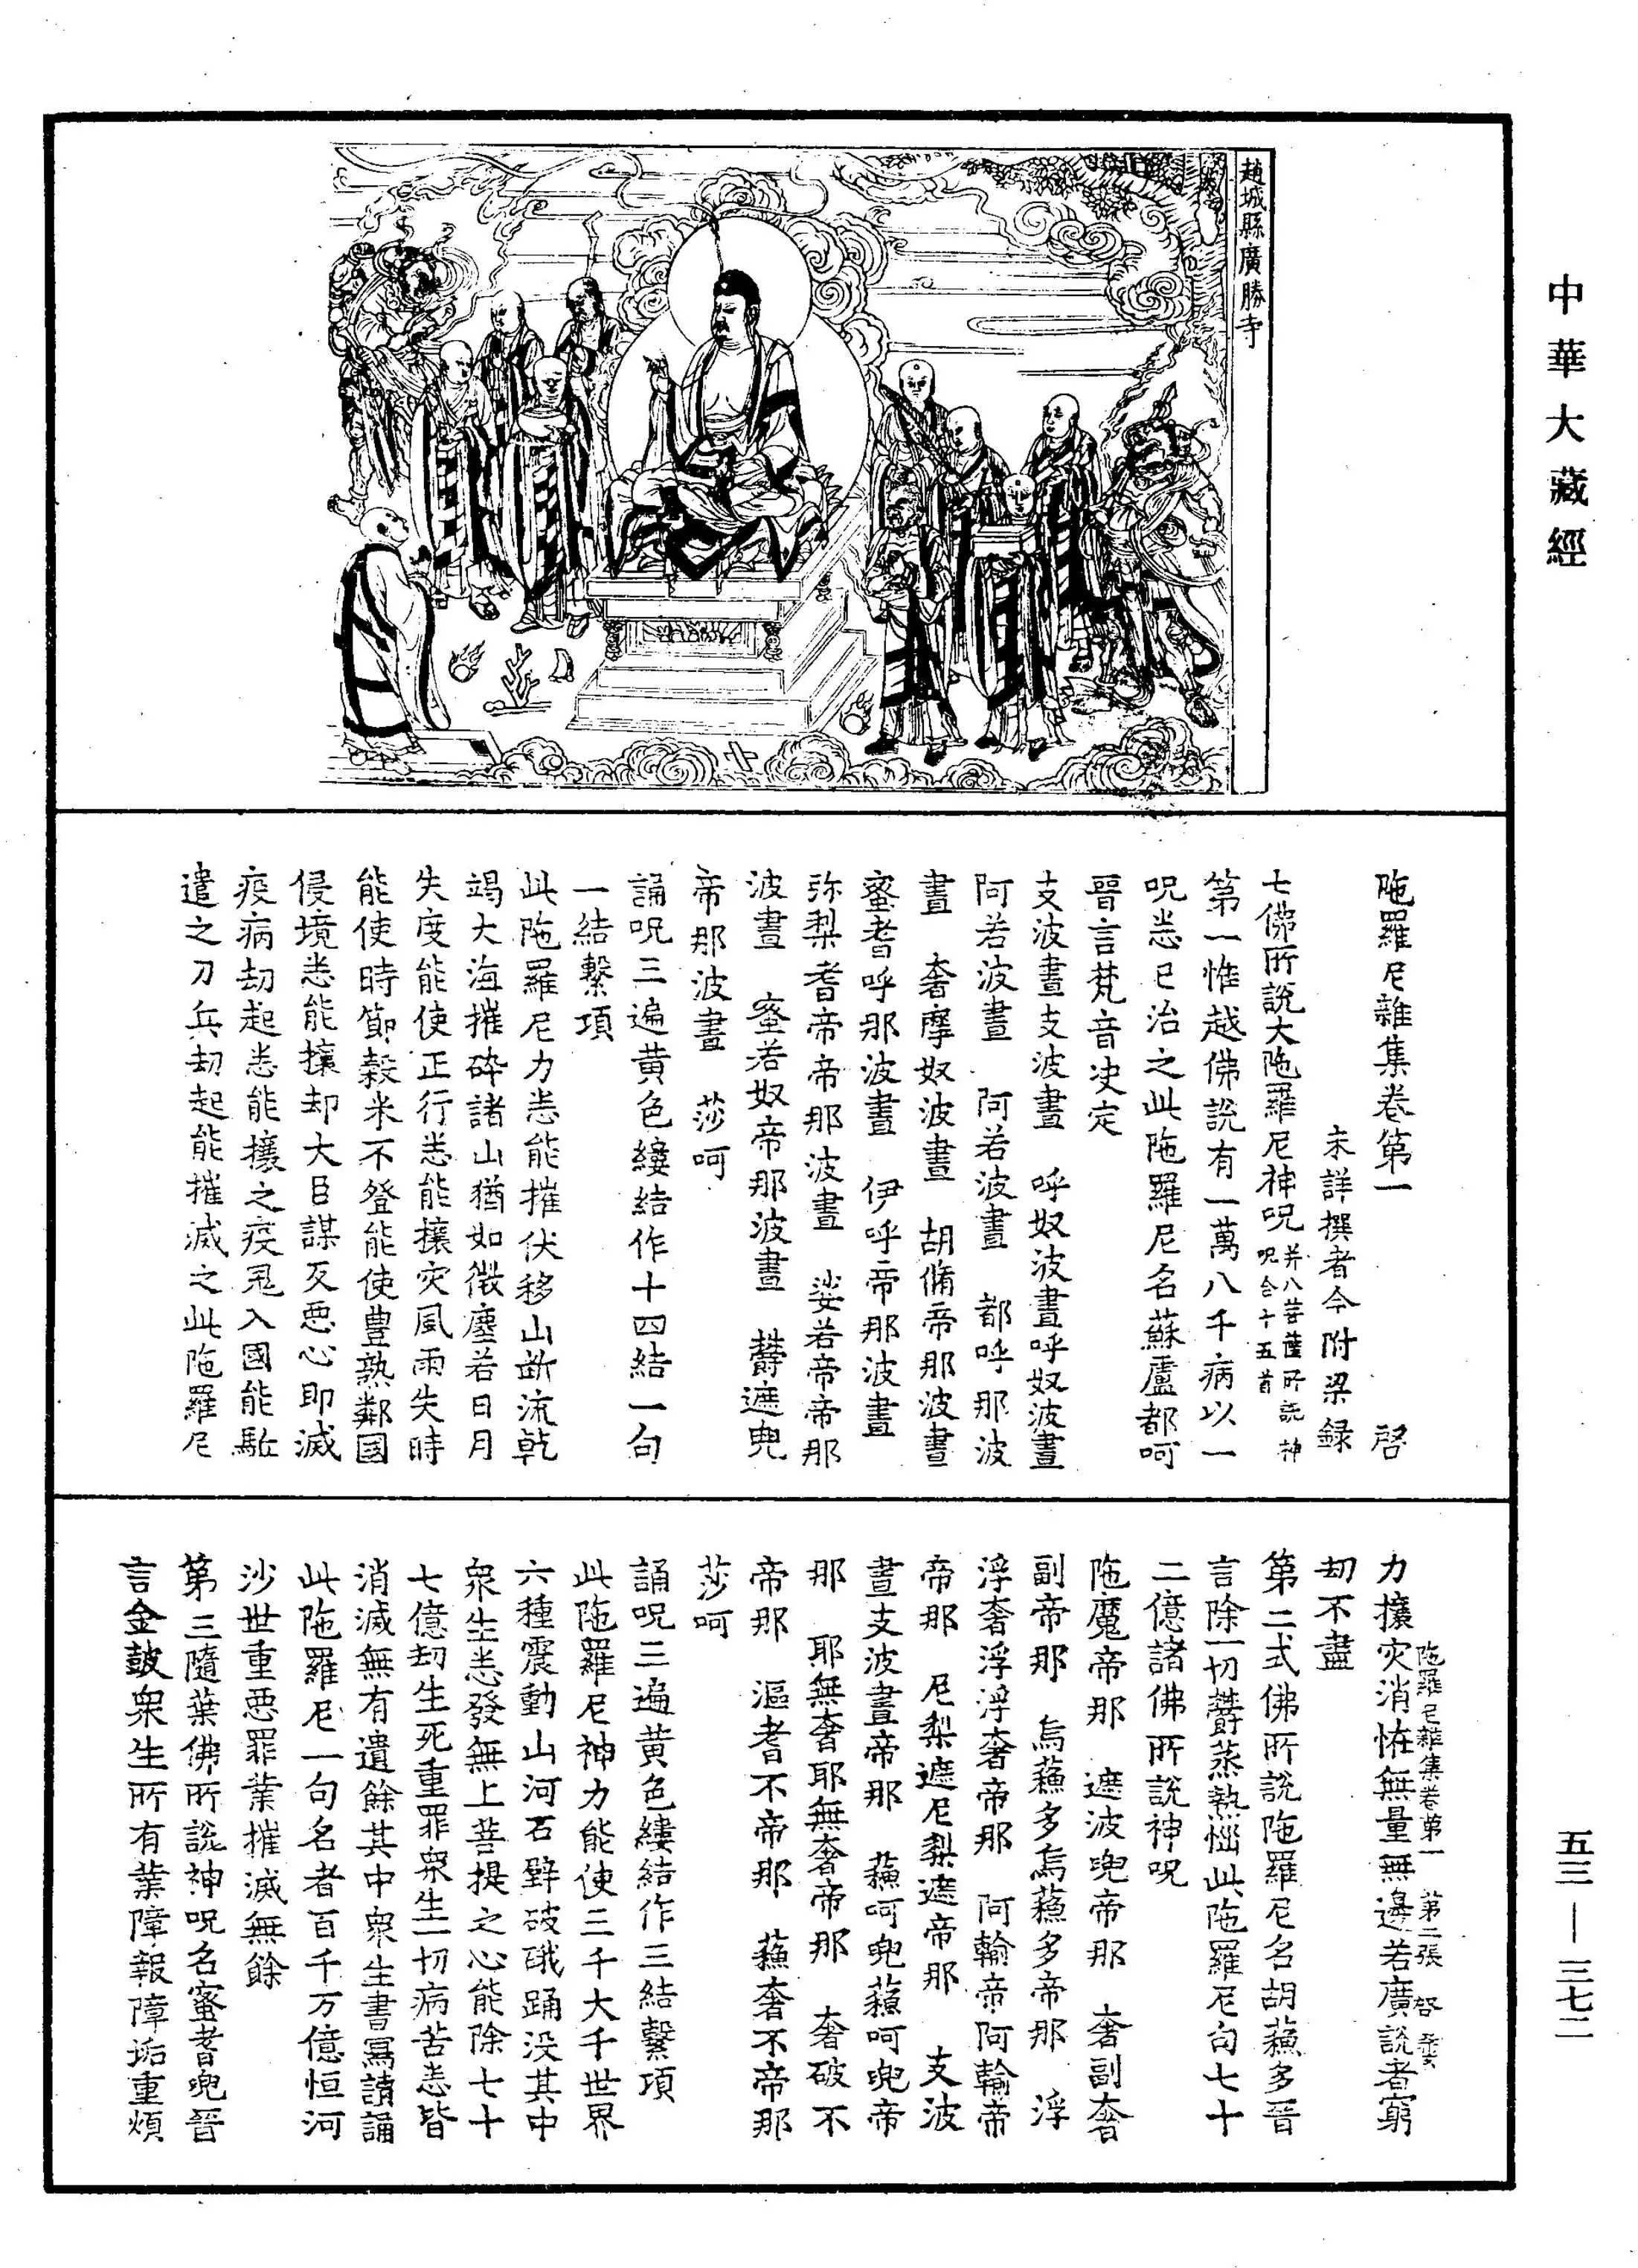 中華大藏經
趙城縣廣勝寺
陁羅尼雜集卷第一　啓
未詳撰者今附梁錄
七佛所說大陁羅尼神呪并八菩薩所說神呪合十五首
第一惟越佛說有一萬八千病以一
呪悉已治之此陁羅尼名蘇盧都呵
晉言梵音決定
支波晝支波晝　呼奴波晝呼奴波晝
阿若波晝　阿若波晝　都呼那波
晝　奢摩奴波晝　胡脩帝那波晝
蜜耆呼那波晝　伊呼帝那波晝
弥梨耆帝帝那波晝　娑若帝帝那
波晝　蜜若奴帝那波晝　欝遮兜
帝那波晝　莎呵
誦呪三遍黃色縷結作十四結一句
一結繫項
此陁羅尼力悉能摧伏移山斷流乾
竭大海摧碎諸山猶如微塵若日月
失度能使正行悉能攘灾風雨失時
能使時節榖米不登能使豊熟鄰國
侵境悉能攘却大臣謀反惡心即滅
疫病劫起悉能攘之疫鬼入國能駈
遣之刀兵劫起能摧滅之此陁羅尼
陁羅尼雜集卷第一　第二張　啓
力攘灾消恠無量無邊若廣說者窮
劫不盡
第二式佛所說陁羅尼名胡蘓多晉
言除一切欝蒸熱惱此陁羅尼句七十
二億諸佛所說神呪
陁魔帝那　遮波兜帝那　奢副奢
副帝那　烏蘓多烏蘓多帝那　浮
浮奢浮浮奢帝那　阿輸帝阿輸帝
帝那　尼梨遮尼梨遮帝那　支波
晝支波晝帝那　蘓呵兜蘓呵兜帝
那　耶無奢耶無奢帝那　奢破不
帝那　漚耆不帝那　蘓奢不帝那
莎呵
誦呪三遍黃色縷結作三結繫項
此陁羅尼神力能使三千大千世界
六種震動山河石壁破碎踊沒其中
衆生悉發無上菩提之心能除七十
七億劫生死重罪衆生一切病苦悉皆
消滅無有遺餘其中衆生書寫讀誦
此陁羅尼一句名者百千万億恒河
沙世重惡罪業摧滅無餘
第三隨葉佛所說神呪名蜜耆兜晉
言金鼓衆生所有業障報障垢重煩
五三—三七二